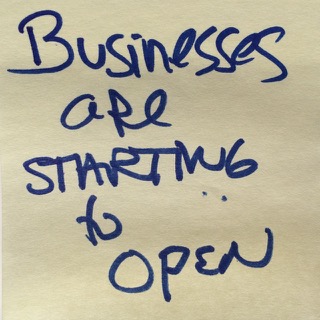 Businesses
are
STARTING
to
OPEN